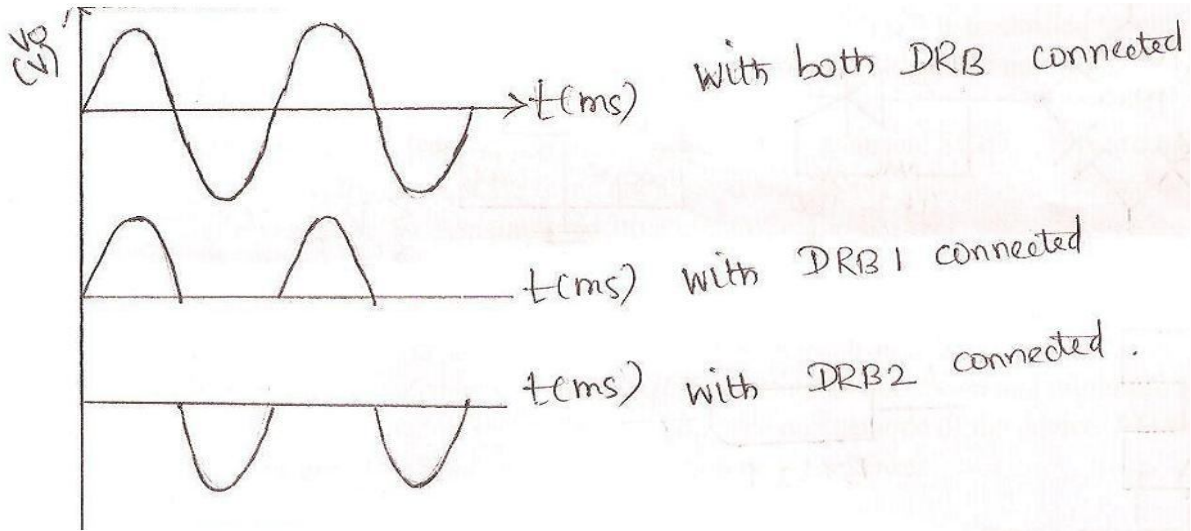 Vo
(V)
t(ms) with both DRB connected
t(ms) with DRB1 connected
t(ms) with DRB2 connected.